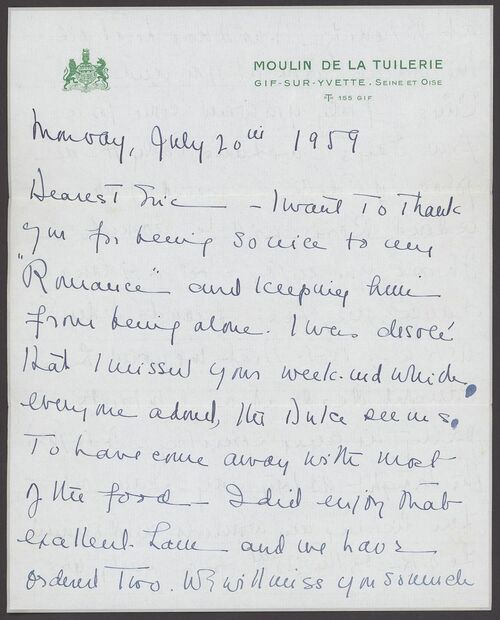 MOULIN DE LA TUILERIE
GIF-SUR-YVETTE. SEINE ET OISE
T 155 GIF
Monday, July 20th 1959
Dearest Eric — I want to thank
you for being so nice to my
"Romance" and keeping him
from being alone. I was désolé
that I missed your week-end which
everyone adored, the Duke seems
to have come away with most
of the food — I did enjoy that
excellent ham and we have
ordered two. We will miss you so much